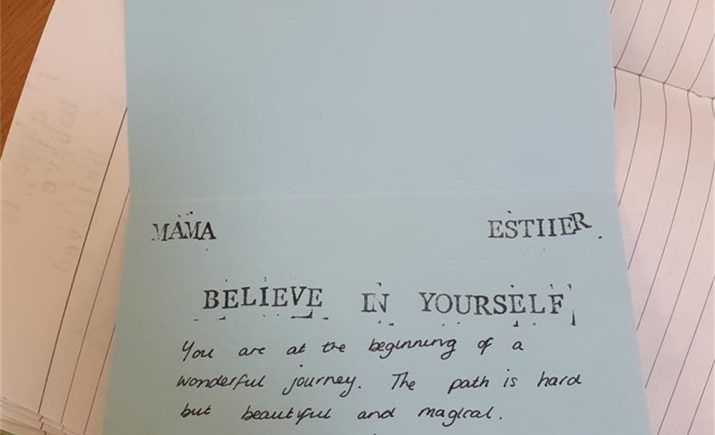 MAMA ESTHER
BELIEVE IN YOURSELF
You are at the beginning of a
wonderful journey. The path is hard
but beautiful and magical.